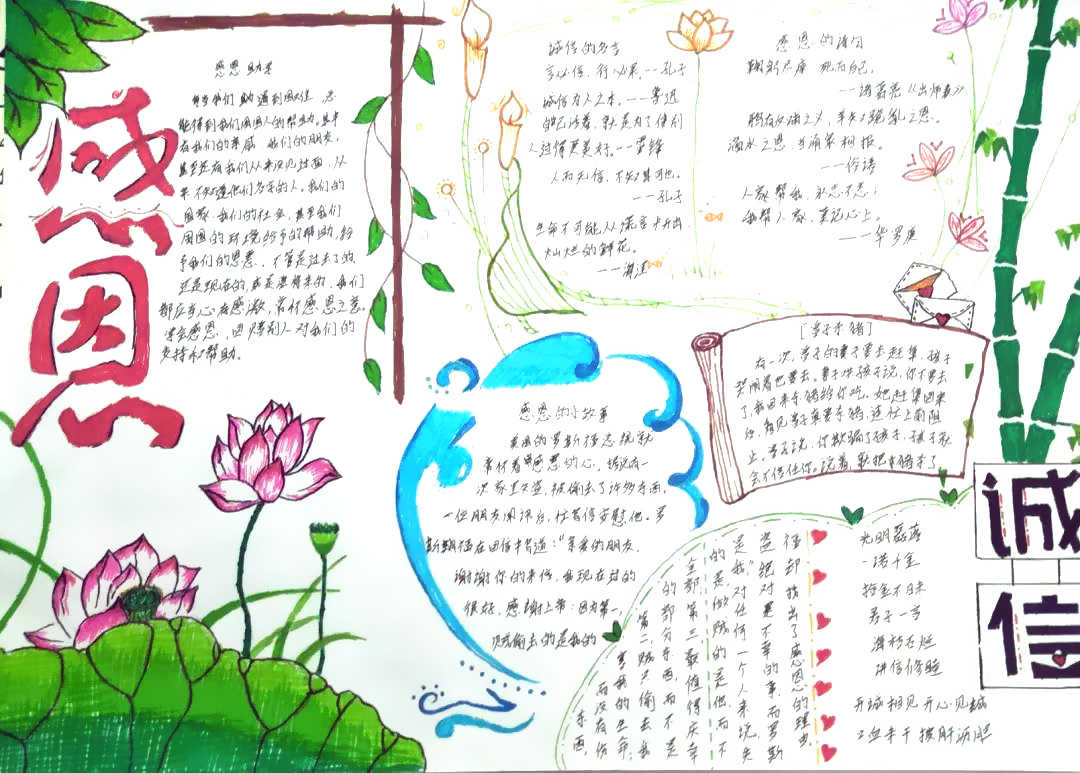 感恩
感恩 助考
每当我们 助遇到困难 总
能得到我们周围人的帮助。其中
有我们的亲戚 我们的朋友,
甚至还有我们从来没见过面、从
来不知道他们名字的人。我们的
国家、我们的社会,甚至我们
周围的环境给予的帮助、给
予我们的恩惠,不管是过去了的
还是现在的,或是虚将来的,我们
都应当心存感激,常怀感恩之意。
学会感恩,回赠别人对我们的
支持和帮助。
诚信的名言
言必信,行必果。——孔子
诚信为人之本。——鲁迅
自己活着,就是为了使别
人过得更美好。——雷锋
人而无信,不知其可也。
——孔子
生命不可能从谎言中开出
灿烂的鲜花。
——海涅
感恩的诗句
鞠躬尽瘁 死而后已。
——诸葛亮《出师表》
滴水之恩,当涌泉相报。
——俗语
人家帮我,永志不忘;
我帮人家,莫记心上。
——华罗庚
[曾子杀猪]
在一次,曾子的妻子要去赶集,孩子
哭闹着也要去。妻子哄孩子说,你不要去
了,我回来杀猪给你吃。她赶集回来
后,看见曾子真要杀猪,连忙上前阻
止。曾子说,你欺骗了孩子,孩子就
会不信任你。说着,就把猪杀了
感恩的小故事
美国的罗斯福总统就
常怀着"感恩"的心。据说有一
次家里失盗,被偷去了许多东西,
一位朋友闻讯后,忙写信安慰他。罗
斯福在回信中写道:"亲爱的朋友,
谢谢你的来信,我现在过的
很好,感谢上帝:因为第一,
贼偷去的是我的
东西,
而没有伤
害我的生命;
第二,贼只偷去我
的部分东西,而不是
全部;第三,最值得庆幸
的是,做贼的是他,而不
是我。"对任何一个人来说,失
盗绝对是不幸的事,而罗斯
福却找出了感恩的理由。
诚
信
光明磊落
一诺千金
拾金不昧
君子一言
讲信修睦
开诚相见 开心见诚
口血未干 披肝沥胆